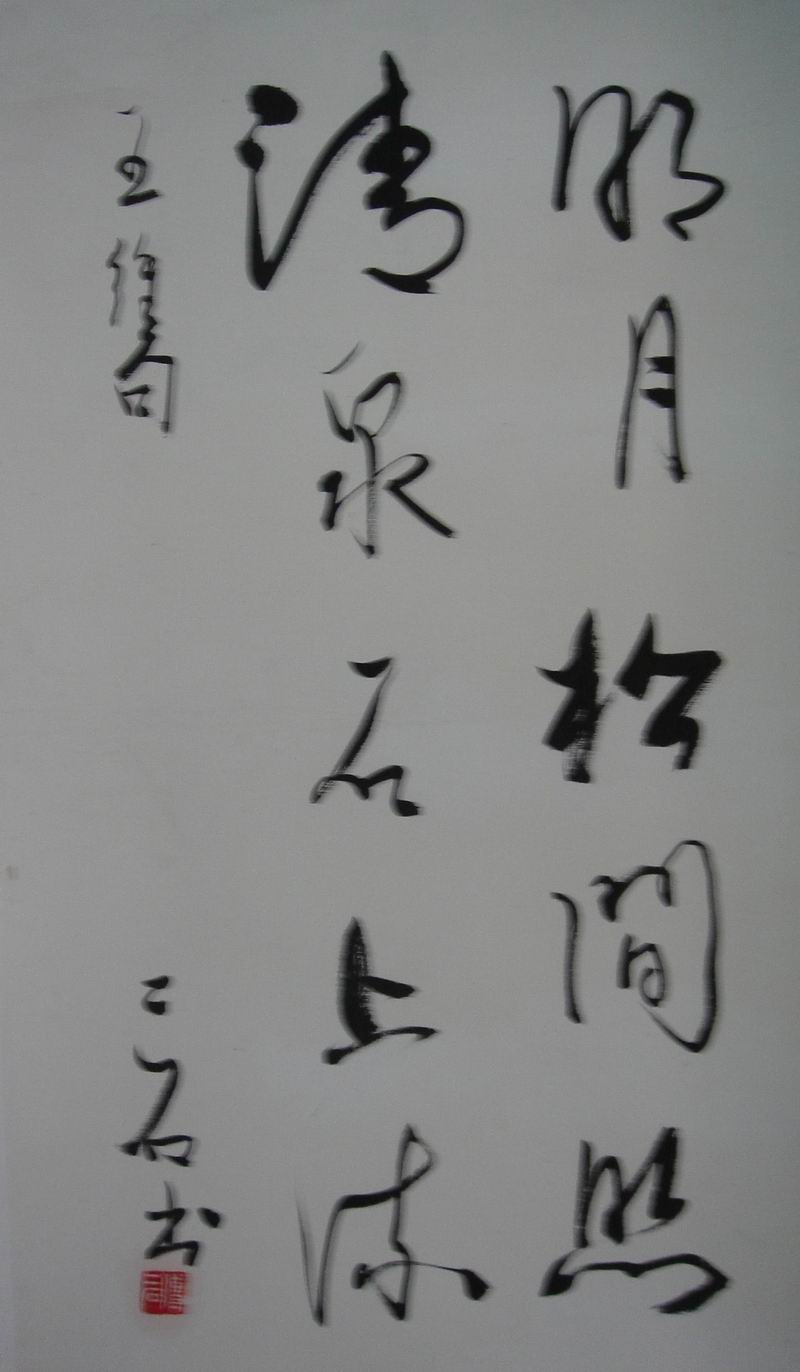 明月松間照
清泉石上流
王維句
二石书